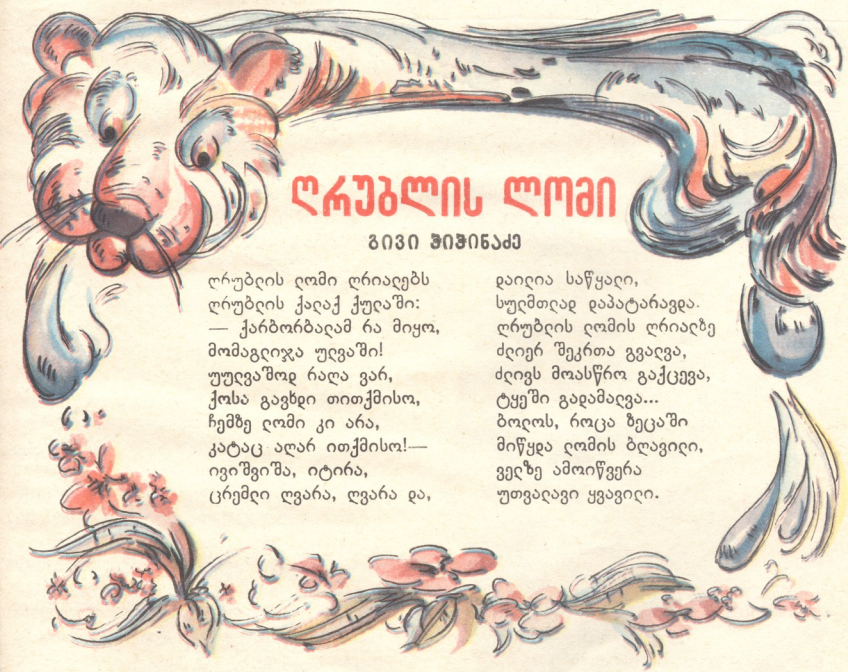 ღრუბლის ლომი
გივი ჭიჭინაძე
ღრუბლის ლომი ღრიალებს
ღრუბლის ქალაქ ქულაში:
— ქარბორბალამ რა მიყო,
მომაგლიჯა ულვაში!
უულვაშოდ რაღა ვარ,
ქოსა გავხდი თითქმისო,
ჩემზე ლომი კი არა,
კატაც აღარ ითქმისო!—
ივიშვიშა, იტირა,
ცრემლი ღვარა, ღვარა და,
დაილია საწყალი,
სულმთლად დაპატარავდა.
ღრუბლის ლომის ღრიალზე
ძლიერ შეკრთა გვალვა,
ძლივს მოასწრო გაქცევა,
ტყეში გადამალვა...
ბოლოს, როცა ზეცაში
მიწყდა ლომის ბღავილი,
ველზე ამოიწვერა
უთვალავი ყვავილი.